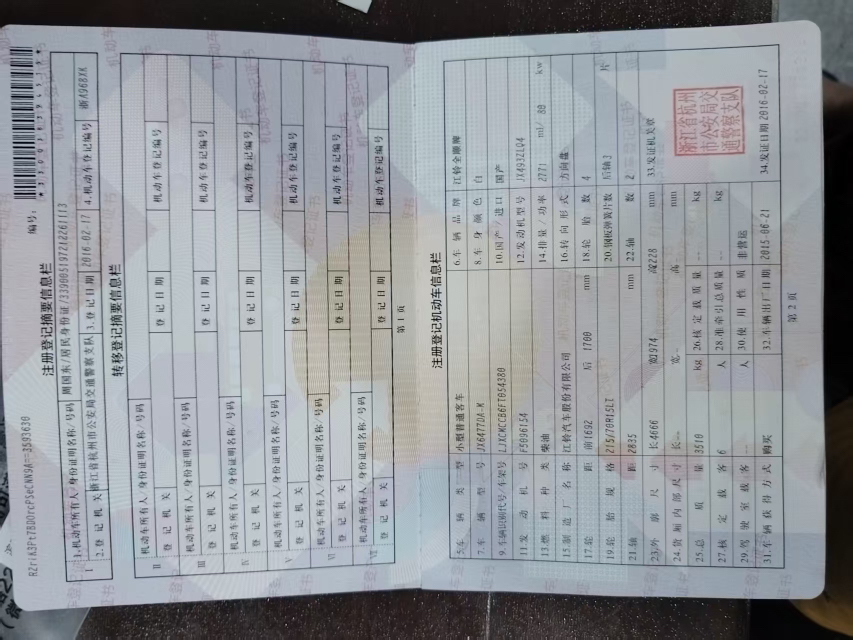 编号:
注册登记摘要信息栏
I 1.机动车所有人/身份证明名称/号码 周国东/居民身份证/339005197212261113
2.登记机关 浙江省杭州市公安局交通警察支队 3.登记日期 2016-02-17 4.机动车登记编号 浙A968XK
转移登记摘要信息栏
II 机动车所有人/身份证明名称/号码
登记机关 登记日期 机动车登记编号
III 机动车所有人/身份证明名称/号码
登记机关 登记日期 机动车登记编号
IV 机动车所有人/身份证明名称/号码
登记机关 登记日期 机动车登记编号
V 机动车所有人/身份证明名称/号码
登记机关 登记日期 机动车登记编号
VI 机动车所有人/身份证明名称/号码
登记机关 登记日期 机动车登记编号
VII 机动车所有人/身份证明名称/号码
登记机关 登记日期 机动车登记编号
第1页
注册登记机动车信息栏
5.车辆类型 小型普通客车 6.车辆品牌 江铃全顺牌
7.车辆型号 JX6477DA-M 8.车身颜色 白
9.车辆识别代号/车架号 LJXCMCCB6FT054380 10.国产/进口 国产
11.发动机号 F5096154 12.发动机型号 JX493ZLQ4
13.燃料种类 柴油 14.排量/功率 2771 ml/ 80 kw
15.制造厂名称 江铃汽车股份有限公司 16.转向形式 方向盘
17.轮距 前1692 后1700 mm 18.轮胎数 4
19.轮胎规格 215/70R15LT 20.钢板弹簧片数 后轴3 片
21.轴距 2835 mm 22.轴数 2
23.外廓尺寸 长4666 宽1974 高2228 mm 33.发证机关章
24.货厢内部尺寸 长-- 宽-- 高-- mm
25.总质量 3510 kg 26.核定载质量 -- kg
27.核定载客 6 人 28.准牵引总质量 -- kg
29.驾驶室载客 -- 人 30.使用性质 非营运
31.车辆获得方式 购买 32.车辆出厂日期 2015-06-21 34.发证日期 2016-02-17
浙江省杭州
市公安局交
通警察支队
第2页